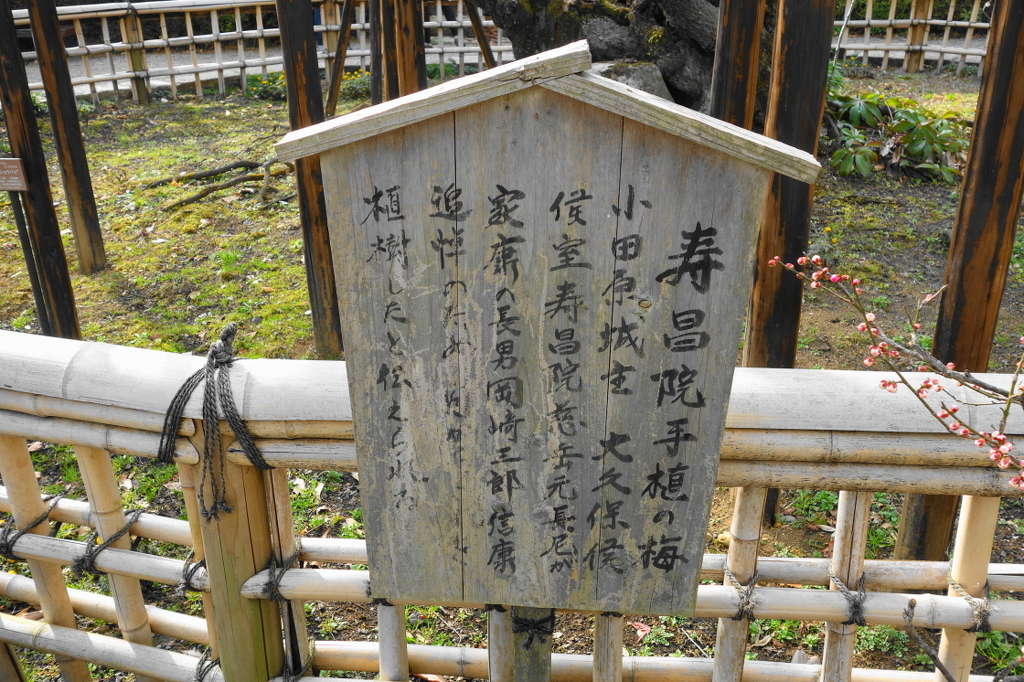 寿昌院手植の梅
小田原城主 大久保侯
侯室寿昌院慈岳元長尼が
家康の長男岡崎三郎信康
追悼のため
植樹したと伝えられる